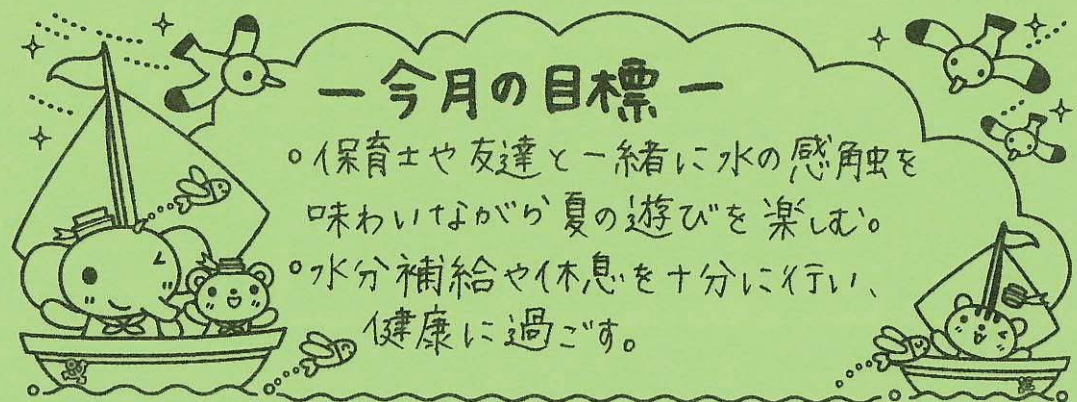 ー今月の目標ー
。保育士や友達と一緒に水の感触を
味わいながら夏の遊びを楽しむ。
。水分補給や休息を十分に行い、
健康に過ごす。